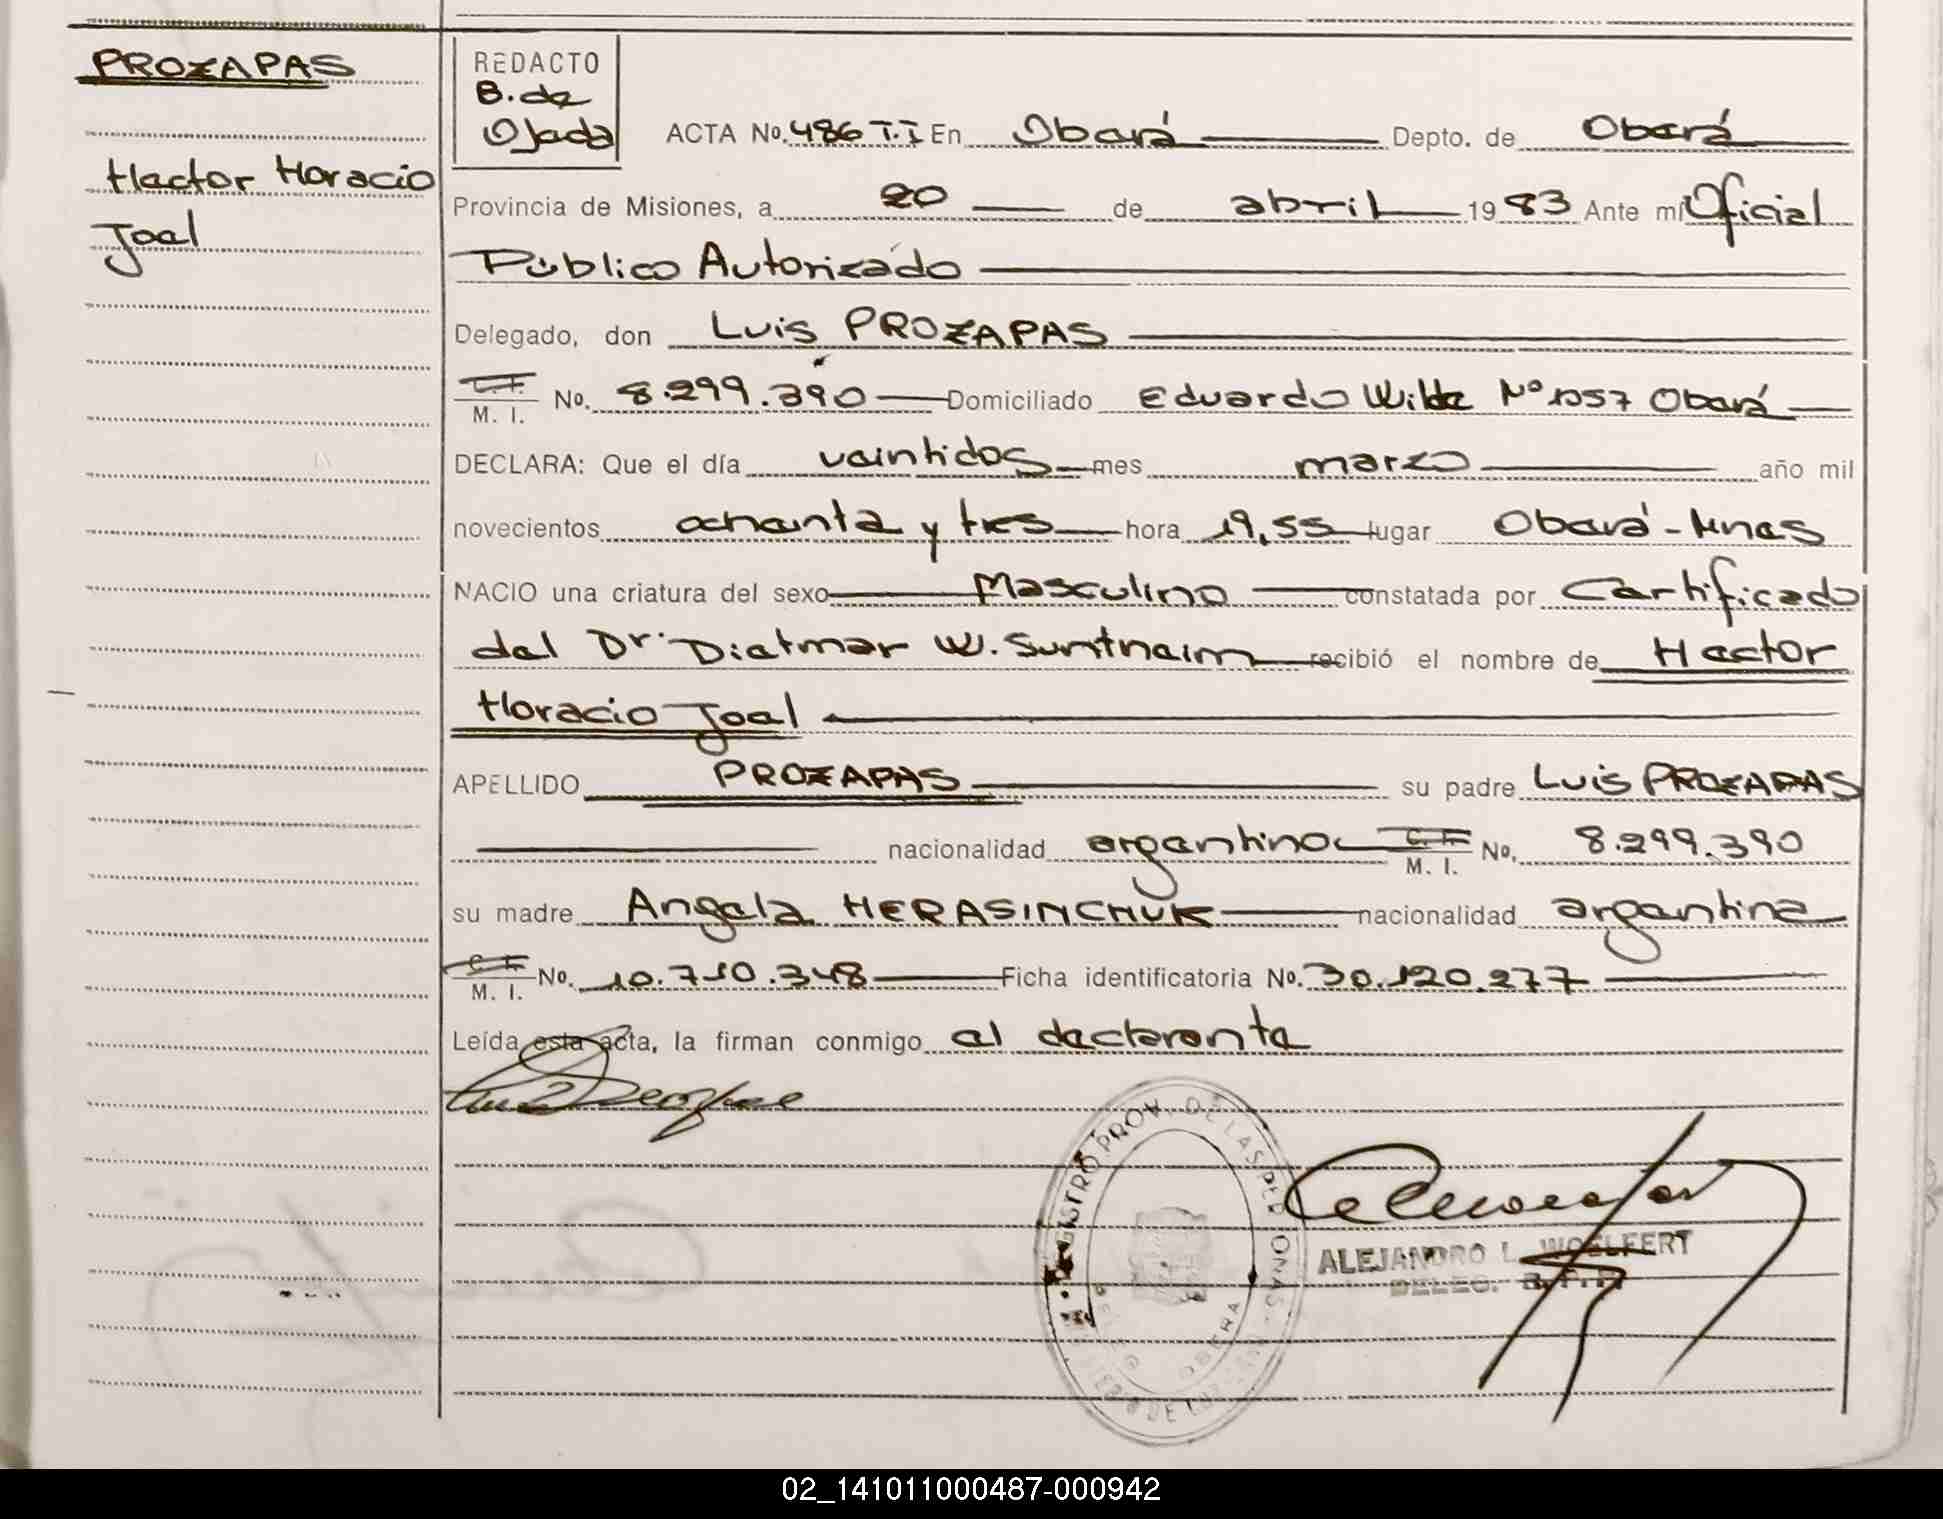 PROZAPAS
Hector Horacio
Joel
REDACTO
B. de
Ojeda
ACTA No. 486 T.I En Oberá Depto. de Oberá
Provincia de Misiones, a 20 de abril 1983 Ante mí Oficial
Público Autorizado
Delegado, don Luis PROZAPAS
C. I. M. I. No. 8.299.390 Domiciliado Eduardo Wilde Nº 1057 Oberá
DECLARA: Que el día veintidos mes marzo año mil
novecientos ochenta y tres hora 19,55 lugar Oberá - Mnes
NACIO una criatura del sexo Masculino constatada por Certificado
del Dr. Dietmar W. Suntheim recibió el nombre de Hector
Horacio Joel
APELLIDO PROZAPAS su padre Luis PROZAPAS
nacionalidad argentino C. I. M. I. No. 8.299.390
su madre Angela HERASINCHUK nacionalidad argentina
C. I. M. I. No. 10.710.348 Ficha identificatoria No. 30.120.277
Leída esta acta, la firman conmigo el declarante
REGISTRO PROV. DE LAS PERSONAS
OBERA
ALEJANDRO L. WOELFERT
DELEG. R.P.P.
02_141011000487-000942